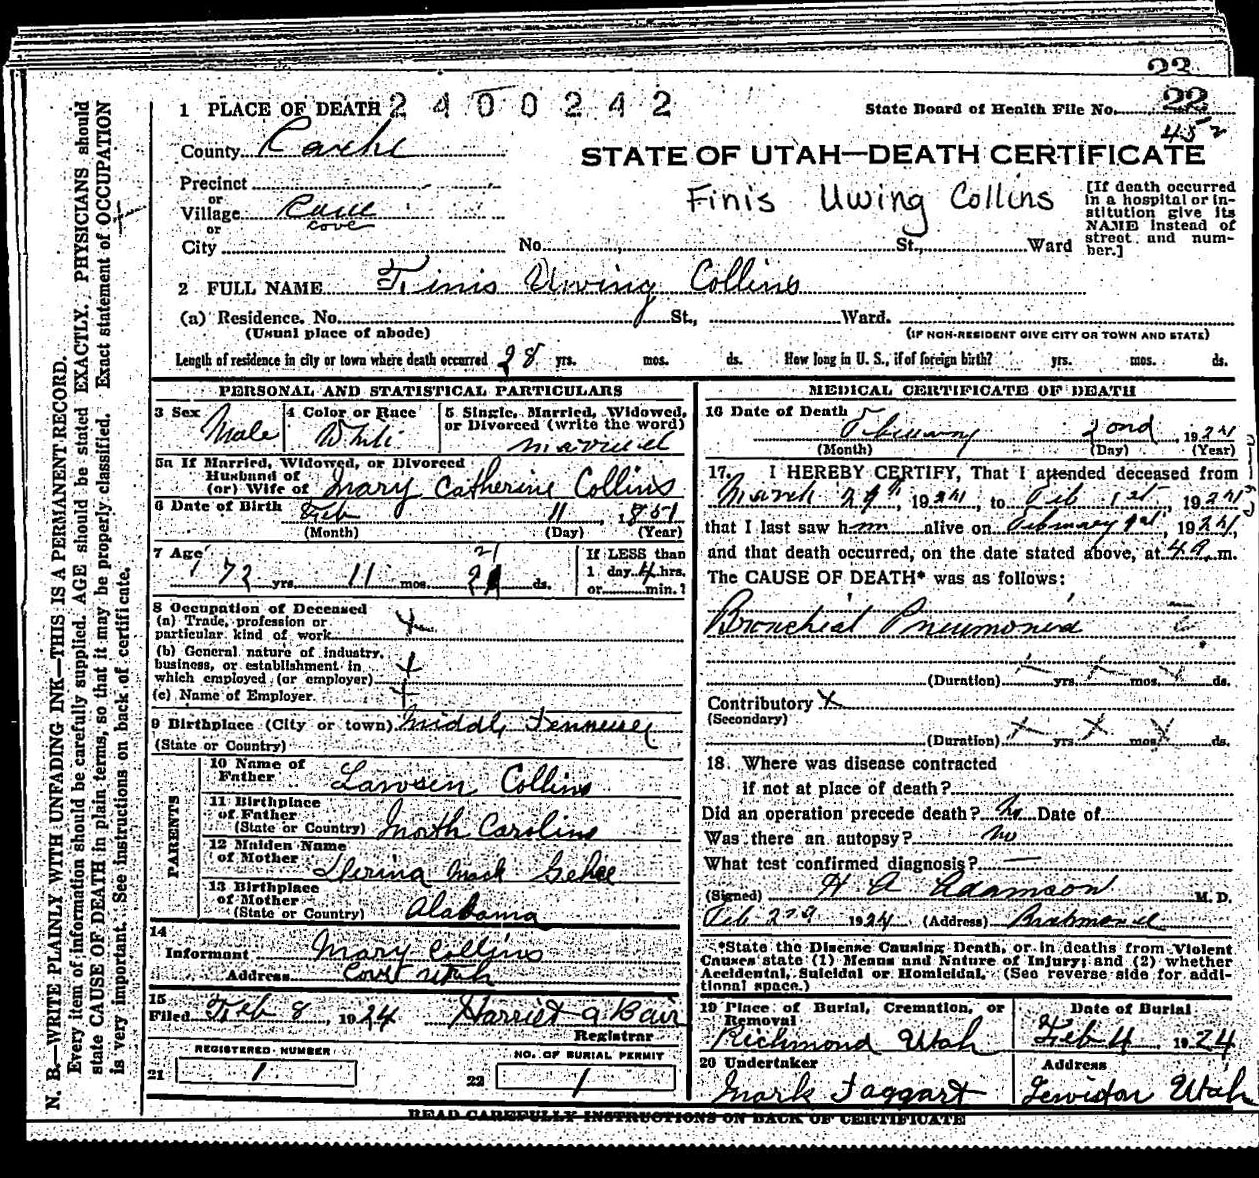 23
22
45
1 PLACE OF DEATH 2400242 State Board of Health File No.
County Cache
STATE OF UTAH—DEATH CERTIFICATE
Precinct
or
Village Cove
cove
or
City No. St., Ward
Finis Uwing Collins
[If death occurred
in a hospital or in-
stitution give its
NAME instead of
street and num-
ber.]
2 FULL NAME Finis Urving Collins
(a) Residence. No. St., Ward.
(Usual place of abode) (IF NON-RESIDENT GIVE CITY OR TOWN AND STATE)
Length of residence in city or town where death occurred 28 yrs. mos. ds. How long in U. S., if of foreign birth? yrs. mos. ds.
PERSONAL AND STATISTICAL PARTICULARS
3 Sex Male
4 Color or Race White
5 Single, Married, Widowed,
or Divorced (write the word)
married
5a If Married, Widowed, or Divorced
Husband of
(or) Wife of Mary Catherine Collins
6 Date of Birth Feb 11, 1851
(Month) (Day) (Year)
7 Age 72 yrs. 11 mos. 21 ds.
21
If LESS than
1 day 4 hrs.
or min.?
8 Occupation of Deceased
(a) Trade, profession or
particular kind of work
(b) General nature of industry,
business, or establishment in
which employed (or employer)
(c) Name of Employer
9 Birthplace (City or town) Middle Tennessee
(State or Country)
PARENTS
10 Name of
Father Lawsen Collins
11 Birthplace
of Father
(State or Country) North Carolina
12 Maiden Name
of Mother Mack Gehee
13 Birthplace
of Mother
(State or Country) Alabama
14
Informant Mary Collins
Address Cove Utah
15
Filed Feb 8, 1924 Harriet A Bair
Registrar
REGISTERED NUMBER
21 1
NO. OF BURIAL PERMIT
22 1
MEDICAL CERTIFICATE OF DEATH
16 Date of Death February 2ond 1924
(Month) (Day) (Year)
17. I HEREBY CERTIFY, That I attended deceased from
March 29th, 1924, to Feb 1st, 1924
that I last saw him alive on February 1st, 1924,
and that death occurred, on the date stated above, at 4 a. m.
The CAUSE OF DEATH* was as follows:
Bronchial Pneumonia
(Duration) yrs. mos. ds.
Contributory X
(Secondary)
(Duration) yrs. mos. ds.
18. Where was disease contracted
if not at place of death?
Did an operation precede death? No Date of
Was there an autopsy? no
What test confirmed diagnosis? —
(Signed) H A Adamson M. D.
Feb 2nd 1924 (Address) Richmond
*State the Disease Causing Death, or in deaths from Violent
Causes state (1) Means and Nature of Injury; and (2) whether
Accidental, Suicidal or Homicidal. (See reverse side for addi-
tional space.)
19 Place of Burial, Cremation, or
Removal
Richmond Utah
Date of Burial
Feb 4 1924
20 Undertaker
Mark Taggart
Address
Lewiston Utah
READ CAREFULLY INSTRUCTIONS ON BACK OF CERTIFICATE
N. B.—WRITE PLAINLY WITH UNFADING INK—THIS IS A PERMANENT RECORD.
Every item of information should be carefully supplied. AGE should be stated EXACTLY. PHYSICIANS should
state CAUSE OF DEATH in plain terms, so that it may be properly classified. Exact statement of OCCUPATION
is very important. See instructions on back of certificate.